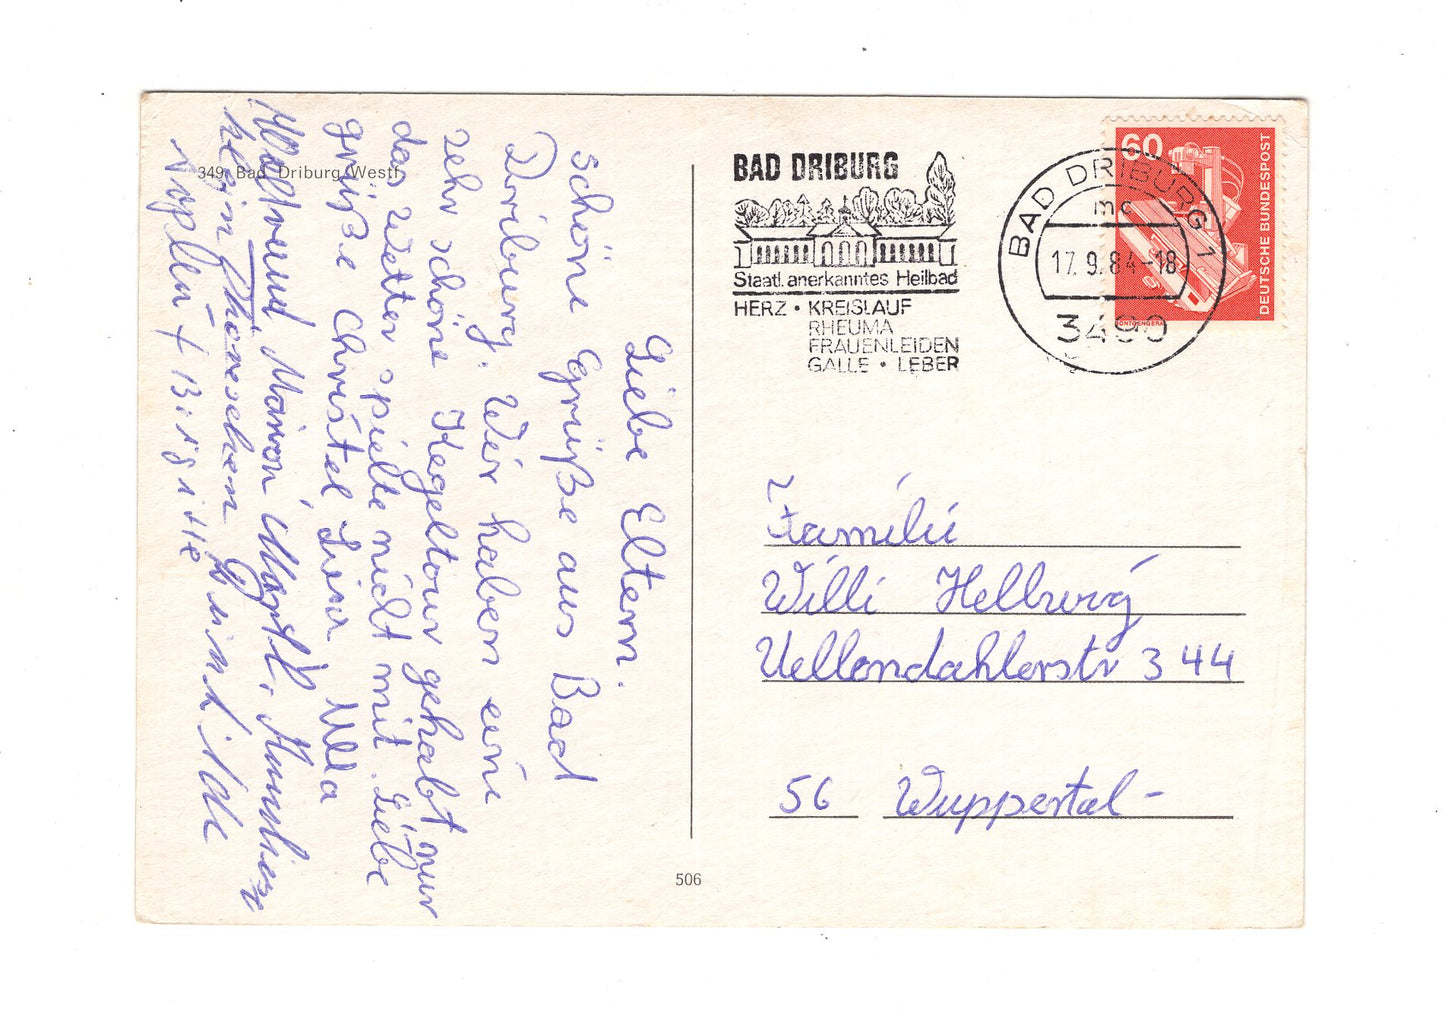 349 Bad Driburg Westf.
Liebe Eltern.
schöne Grüße aus Bad
Driburg. Wir haben eine
sehr schöne Kegeltour gehabt nur
das Wetter spielte nicht mit. Liebe
grüße Christel, Lisa Ulla
Marion
klein
+ Birgitte
506
BAD DRIBURG
Staatl. anerkanntes Heilbad
HERZ • KREISLAUF
RHEUMA
FRAUENLEIDEN
GALLE • LEBER
BAD DRIBURG 1
mc
17.9.84-18
3490
60
DEUTSCHE BUNDESPOST
Familie
Willi Hellwig
Uellendahlerstr 344
56 Wuppertal-